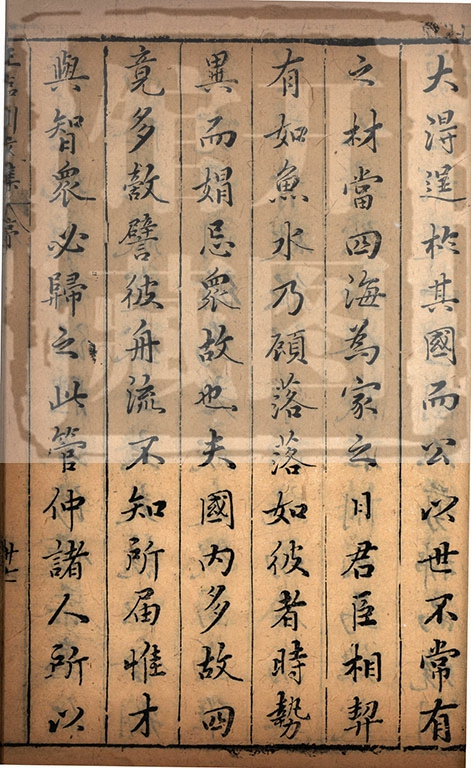 大得逞於其國而公以世不常有
之材當四海為家之日君臣相契
有如魚水乃顧落落如彼者時勢
異而媢忌衆故也夫國内多故四
竟多敵譬彼舟流不知所届惟才
與智衆必歸之此管仲諸人所以